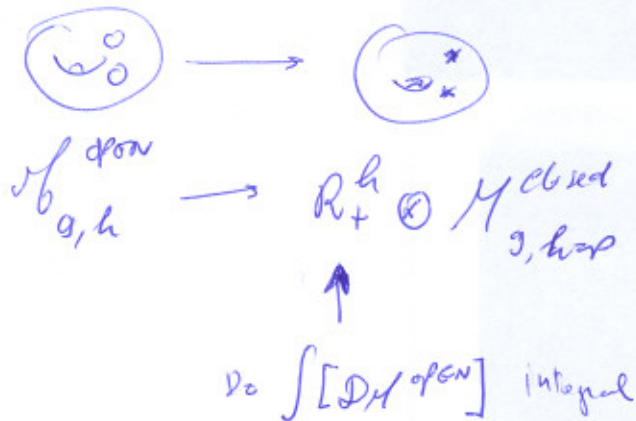 M^{open}_{g,h} → R_+^h ⊗ M^{closed}_{g,h=p}
Do ∫[DM^{OPEN}] integral